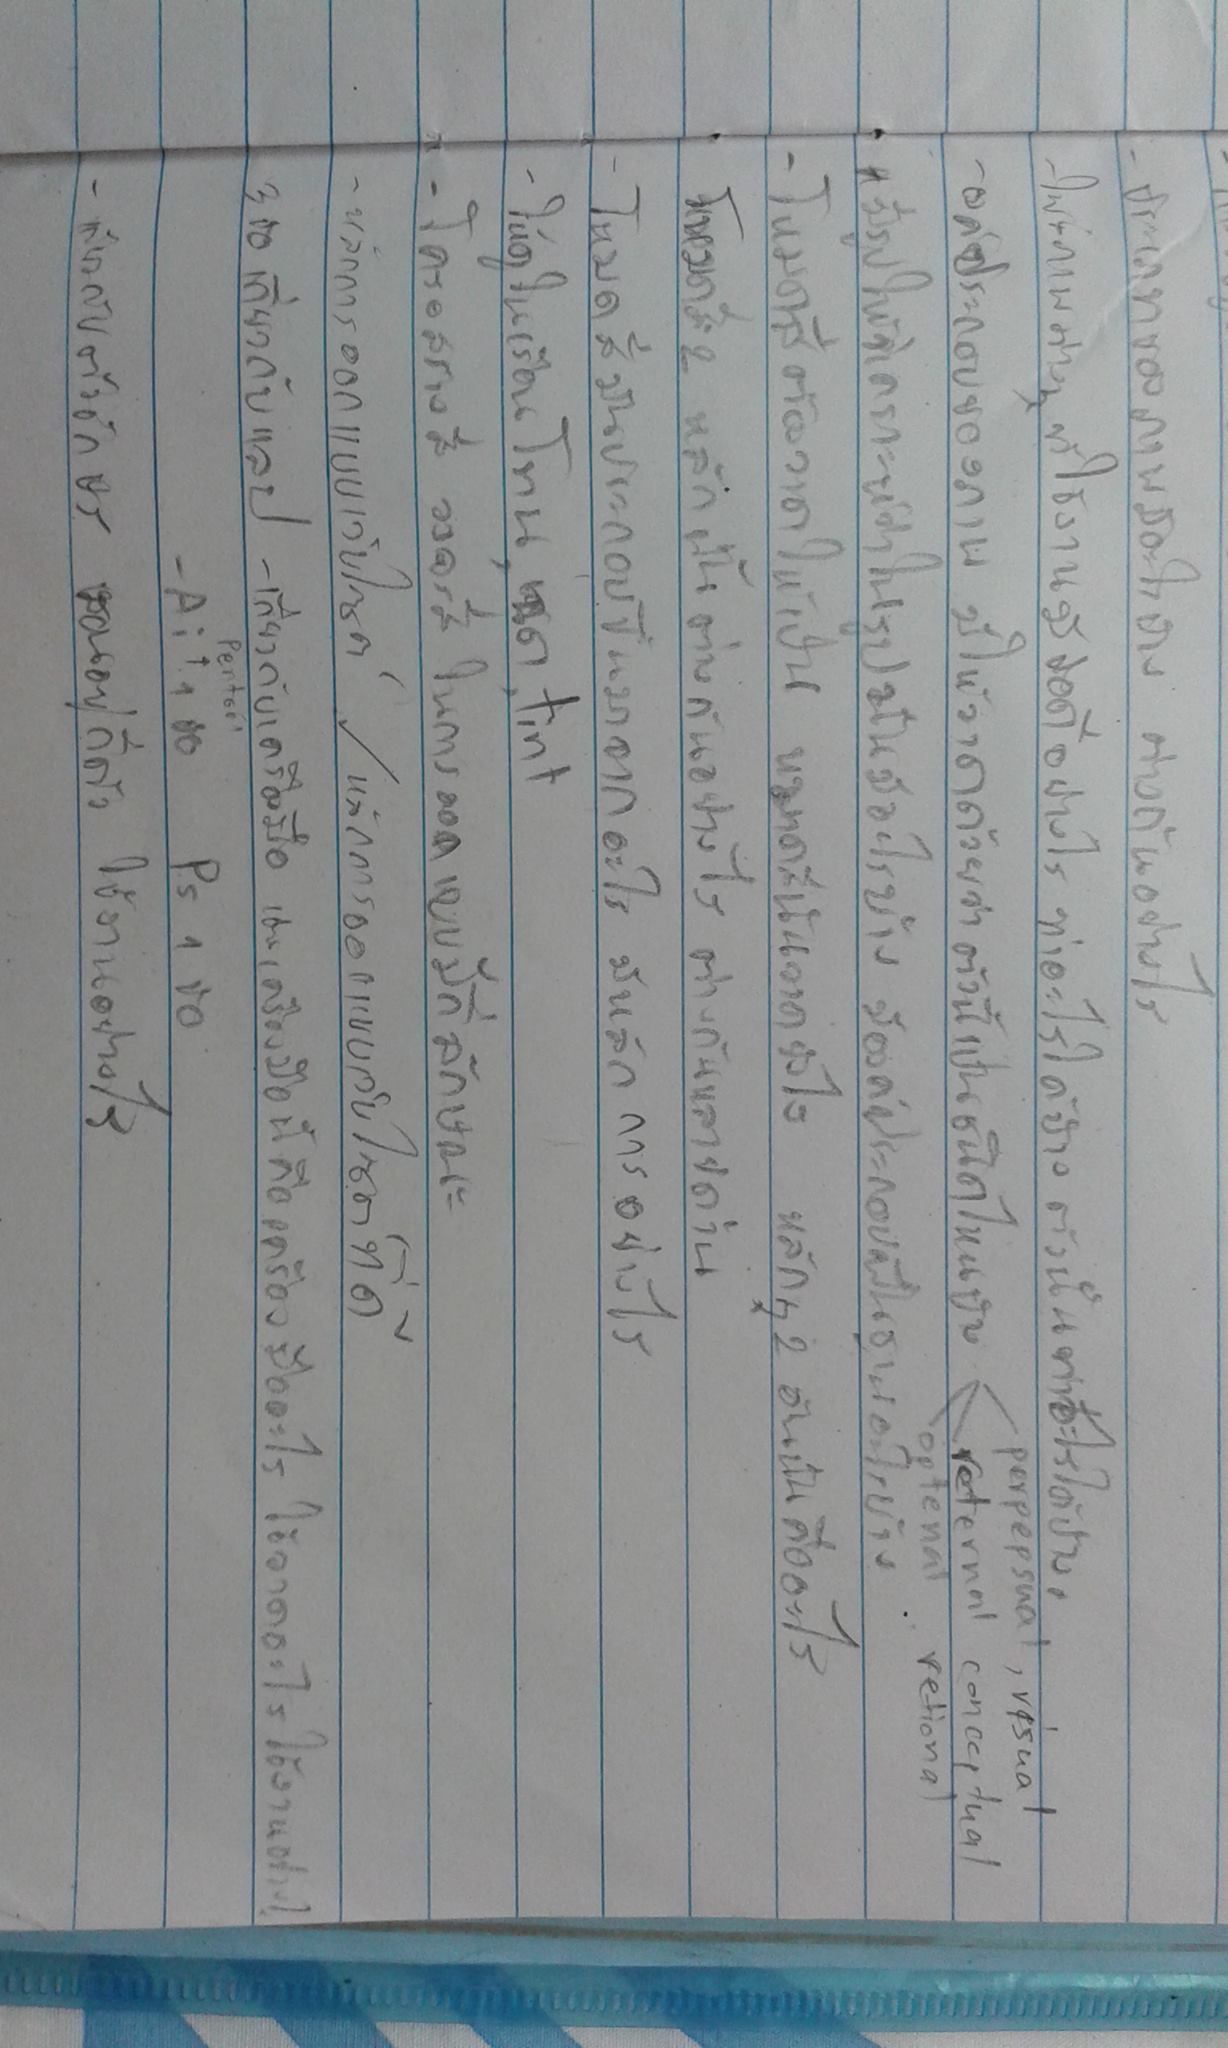 - ประเภทของภาพมีอะไรบ้าง ต่างกันอย่างไร
- ไฟล์ภาพต่างๆ ที่ใช้งานมีข้อดีอย่างไร ทำอะไรได้บ้าง ตัวนั้นทำอะไรได้บ้าง
perpepsual, visual
- องค์ประกอบของภาพ มีให้วาดด้วยว่าตัวนี้เป็นชนิดไหนบ้าง
reternal conceptual
optenal retional
มีรูปให้วิเคราะห์ว่าในรูปมันมีอะไรบ้าง มีองค์ประกอบพื้นฐานอะไรบ้าง
- โหมดสีต้องวาดให้เป็น หมวดสีนั้นวาดยังไง หลักๆ 2 อันนั้นคืออะไร
โหมดสี 2 หลักนั้นต่างกันอย่างไร ต่างกันหลายด้าน
- โหมดสีมันประกอบขึ้นมาจากอะไร มีหลักการอย่างไร
- ให้ดูในเรื่อน โทน, เฉด, tint
- โครงสร้างสี วงจรสี ในการออกแบบมีกี่ลักษณะ
- หลักการออกแบบเว็บไซต์ / หลักการออกแบบเว็บไซต์ที่ดี
3 ข้อ เกี่ยวกับแลป - เกี่ยวกับเครื่องมือ เช่นเครื่องมือนี้คือเครื่องมืออะไร ใช้วาดอะไร ใช้งานอย่างไร
Pentool
- Ai ↑ 1 ข้อ Ps 1 ข้อ
- เกี่ยวกับตัวอักษร อยู่กี่ตัว ใช้งานอย่างไร